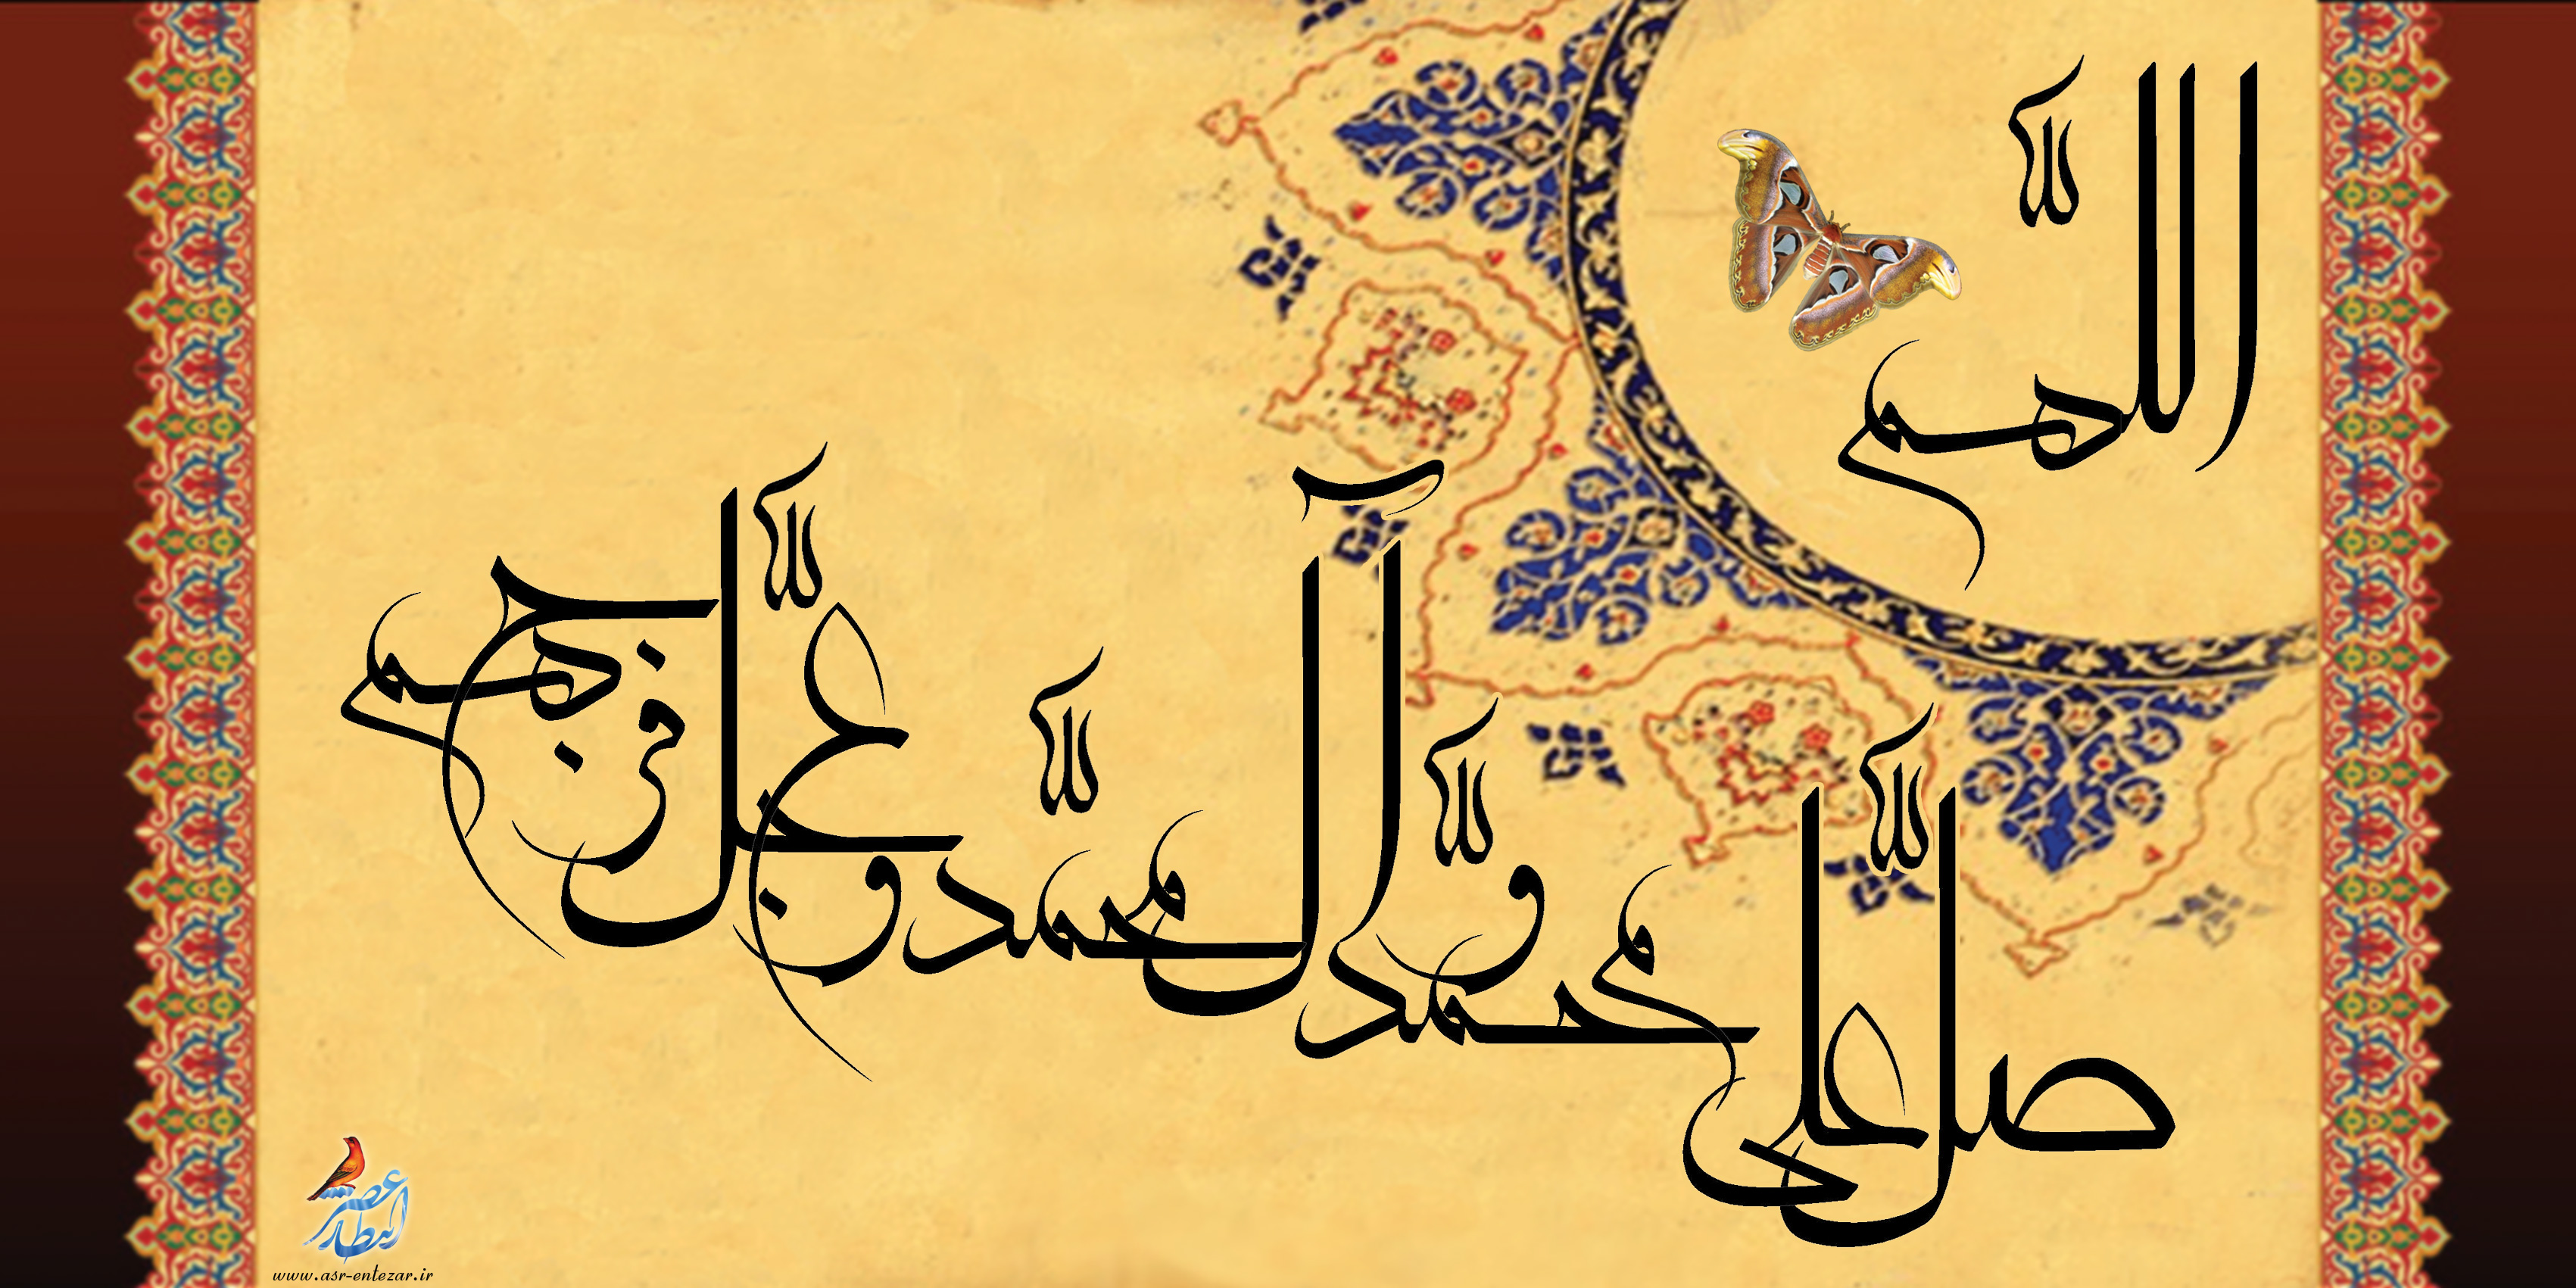 اللهم
صل علی محمد و آل محمد و عجل فرجهم
عصر انتظار
www.asr-entezar.ir